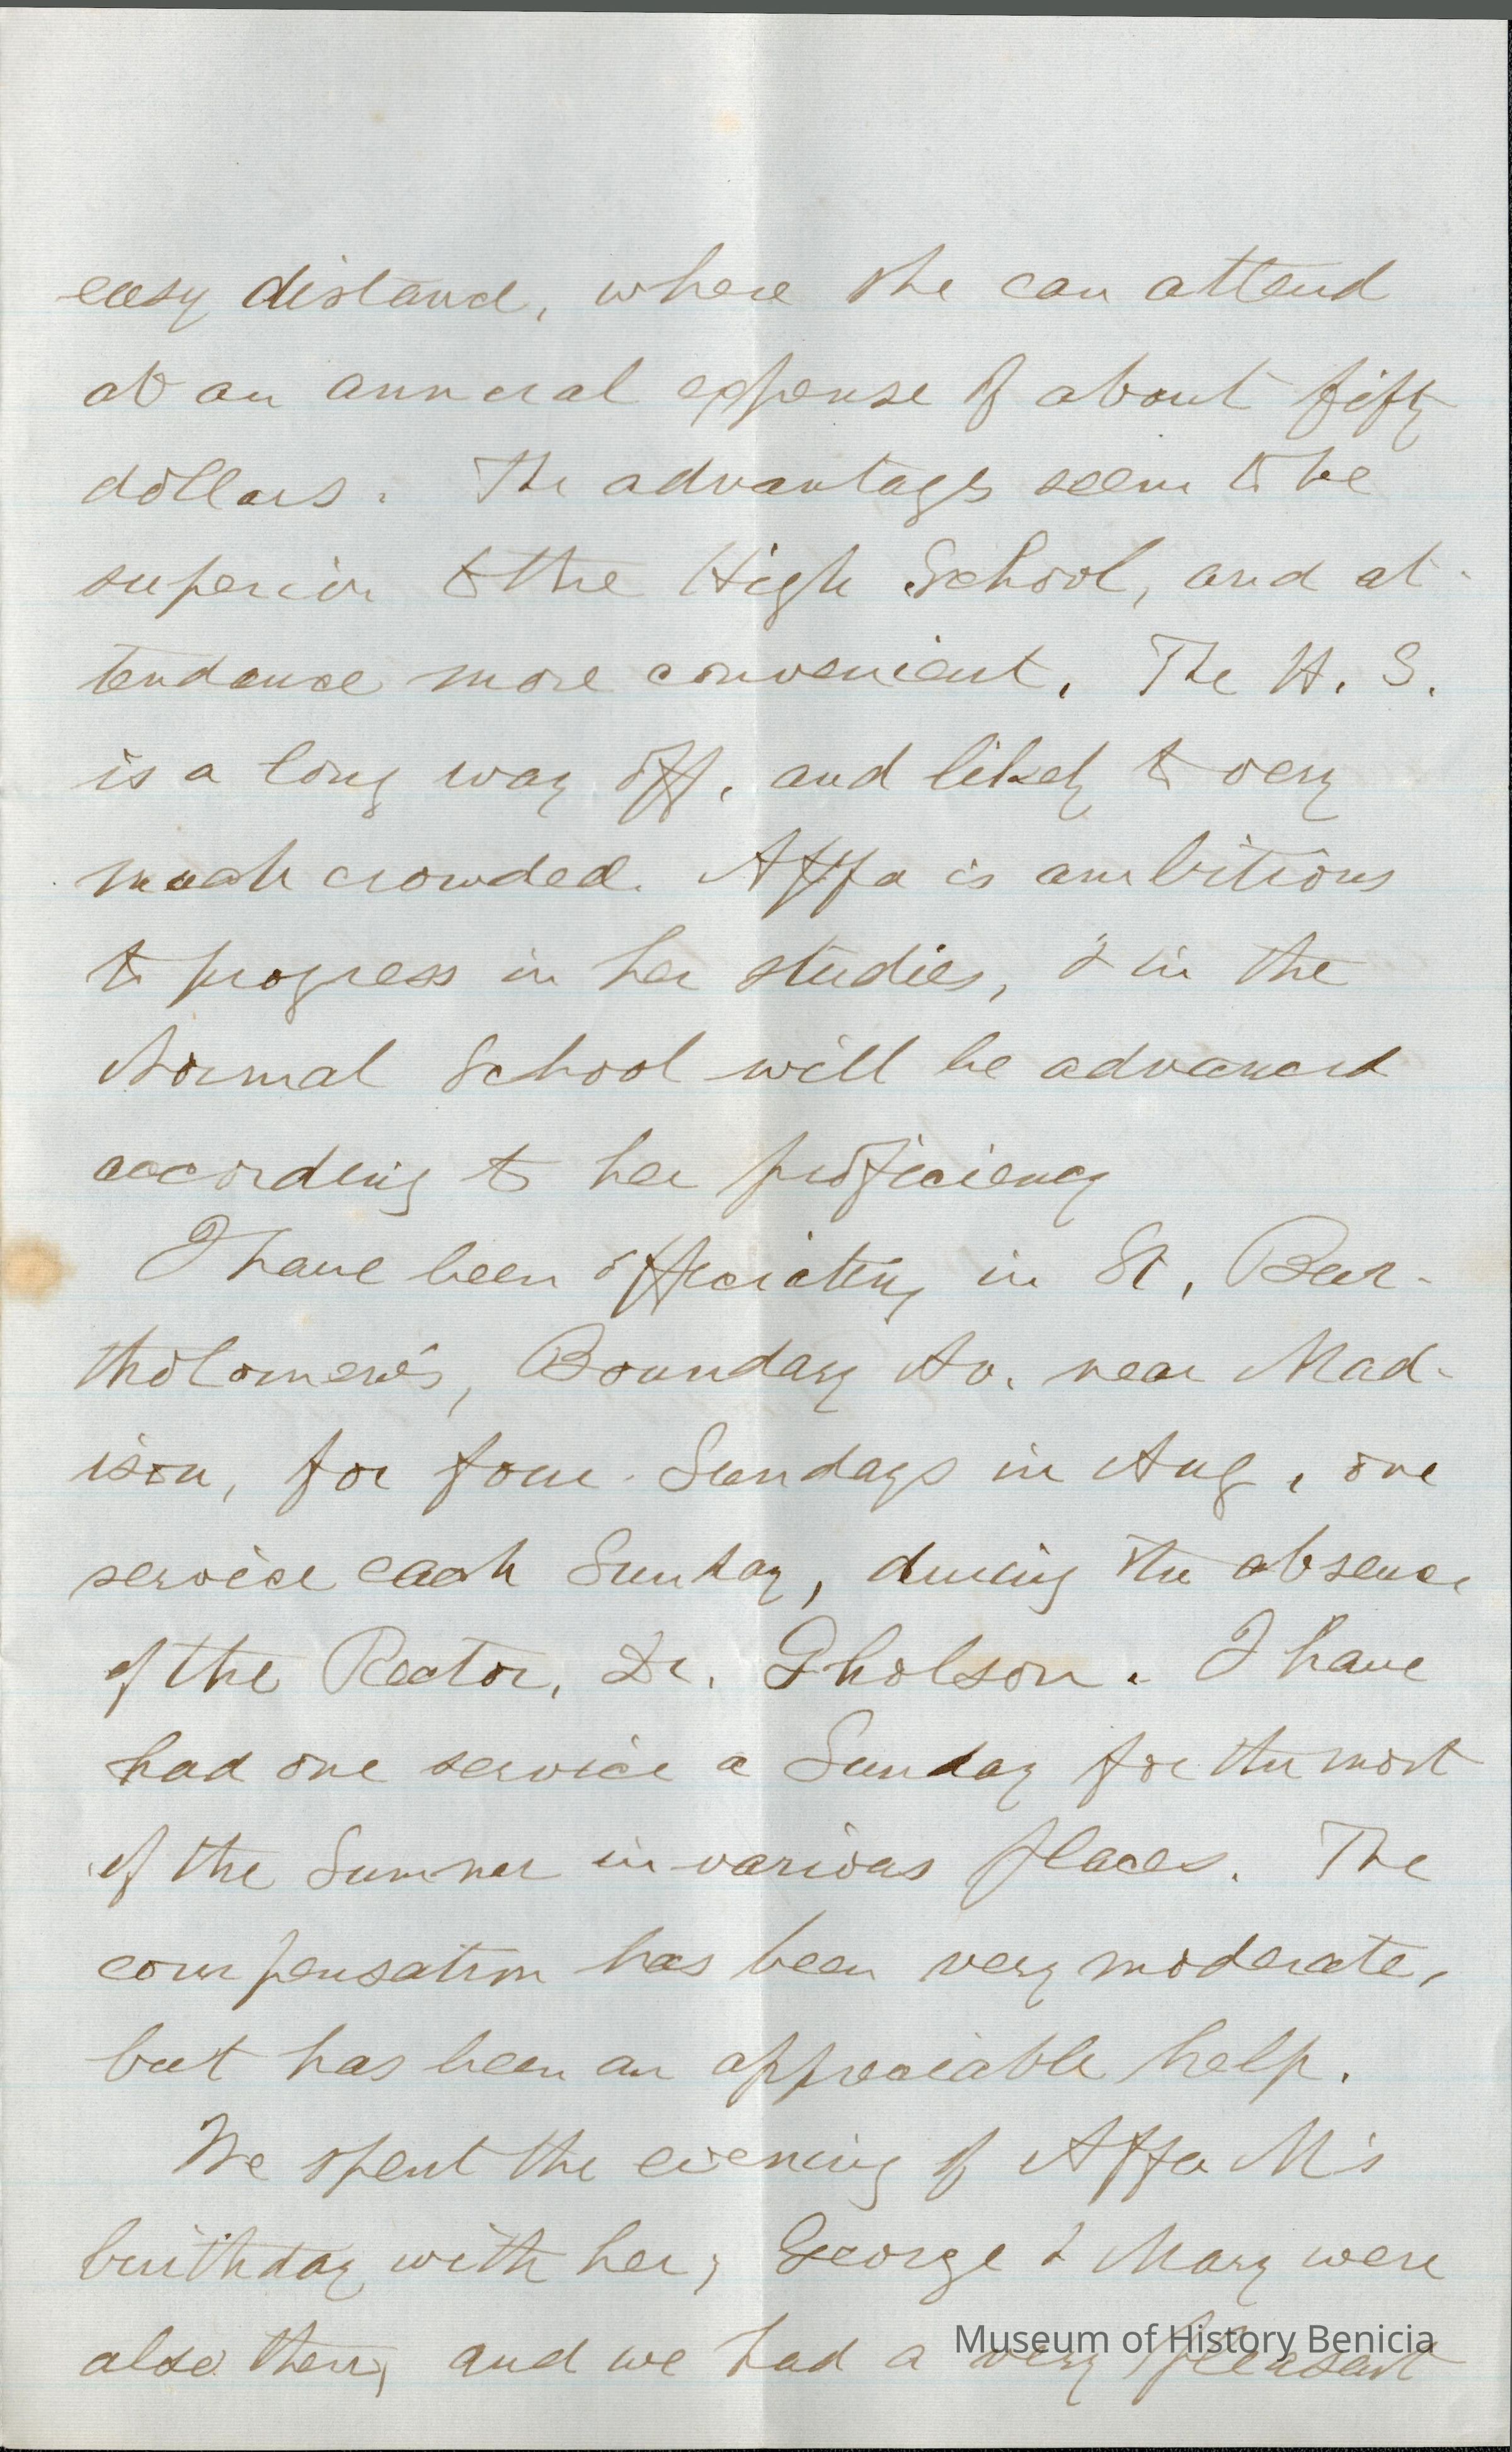 easy distance, where she can attend
at an annual expense of about fifty
dollars. The advantages seem to be
superior to the High School, and at-
tendance more convenient. The H. S.
is a long way off, and likely to very
much crowded. Affa is ambitious
to progress in her studies, & in the
Normal School will be advanced
according to her proficiency
I have been officiating in St. Bar-
tholomew's, Boundary Av. near Mad-
ison, for four Sundays in Aug, one
service each Sunday, during the absence
of the Rector, Dr. Gholson. I have
had one service a Sunday for the most
of the Summer in various places. The
compensation has been very moderate,
but has been an appreciable help.
We spent the evening of Affa M's
birthday with her; George & Mary were
also there, and we had a very pleasant
Museum of History Benicia